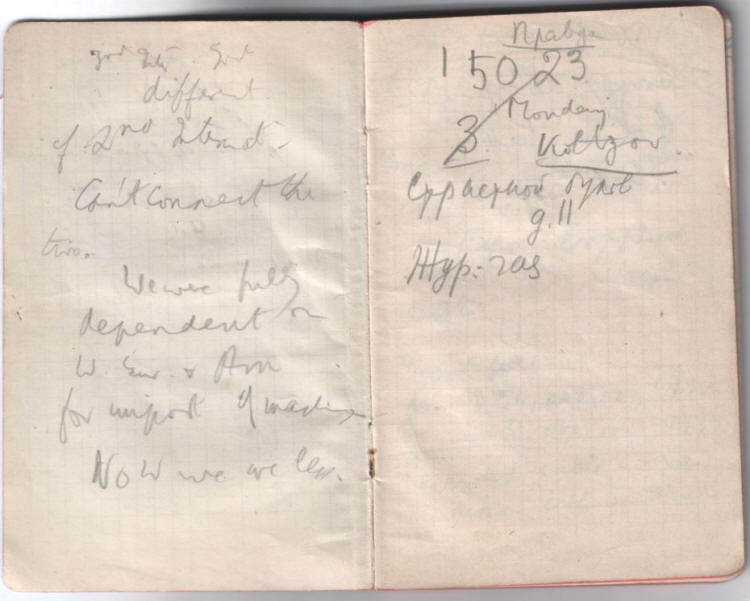 different
of 2nd Internat -
Can't connect the
two.
We were fully
dependent on
W. Eur. & Am
for import of machines
Now we are less.
Правда
1 50 23
Monday
3. Koltzov.
Страстной бульв
д. 11
Жур-газ